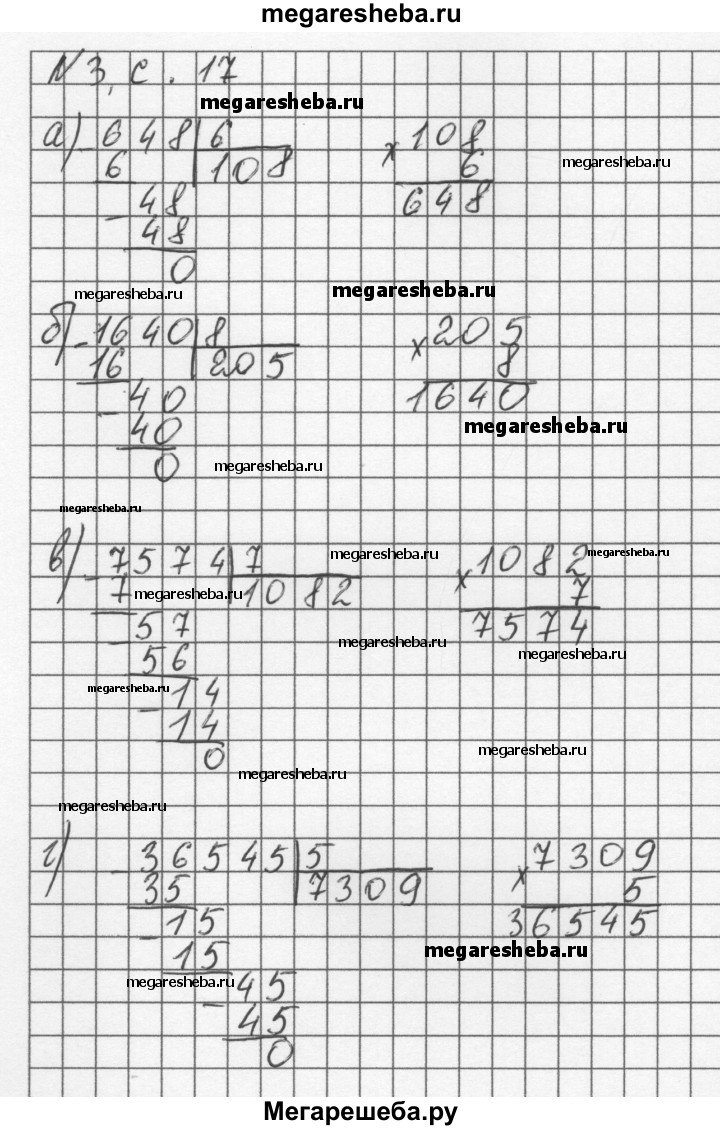 megaresheba.ru
N 3, с. 17
megaresheba.ru
а) - 648 | 6 × 108
6 108 6 megaresheba.ru
- 48 648
48
0
megaresheba.ru megaresheba.ru
б) - 1640 | 8 × 205
16 205 8
- 40 1640
40 megaresheba.ru
0 megaresheba.ru
megaresheba.ru
в) - 7574 | 7 megaresheba.ru × 1082 megaresheba.ru
7 megaresheba.ru 1082 7
- 57 megaresheba.ru 7574
56 megaresheba.ru
megaresheba.ru - 14
14
0 megaresheba.ru
megaresheba.ru
megaresheba.ru
г) - 36545 | 5 × 7309
35 7309 5
- 15 36545
15 megaresheba.ru
megaresheba.ru - 45
45
0
Мегарешеба.ру